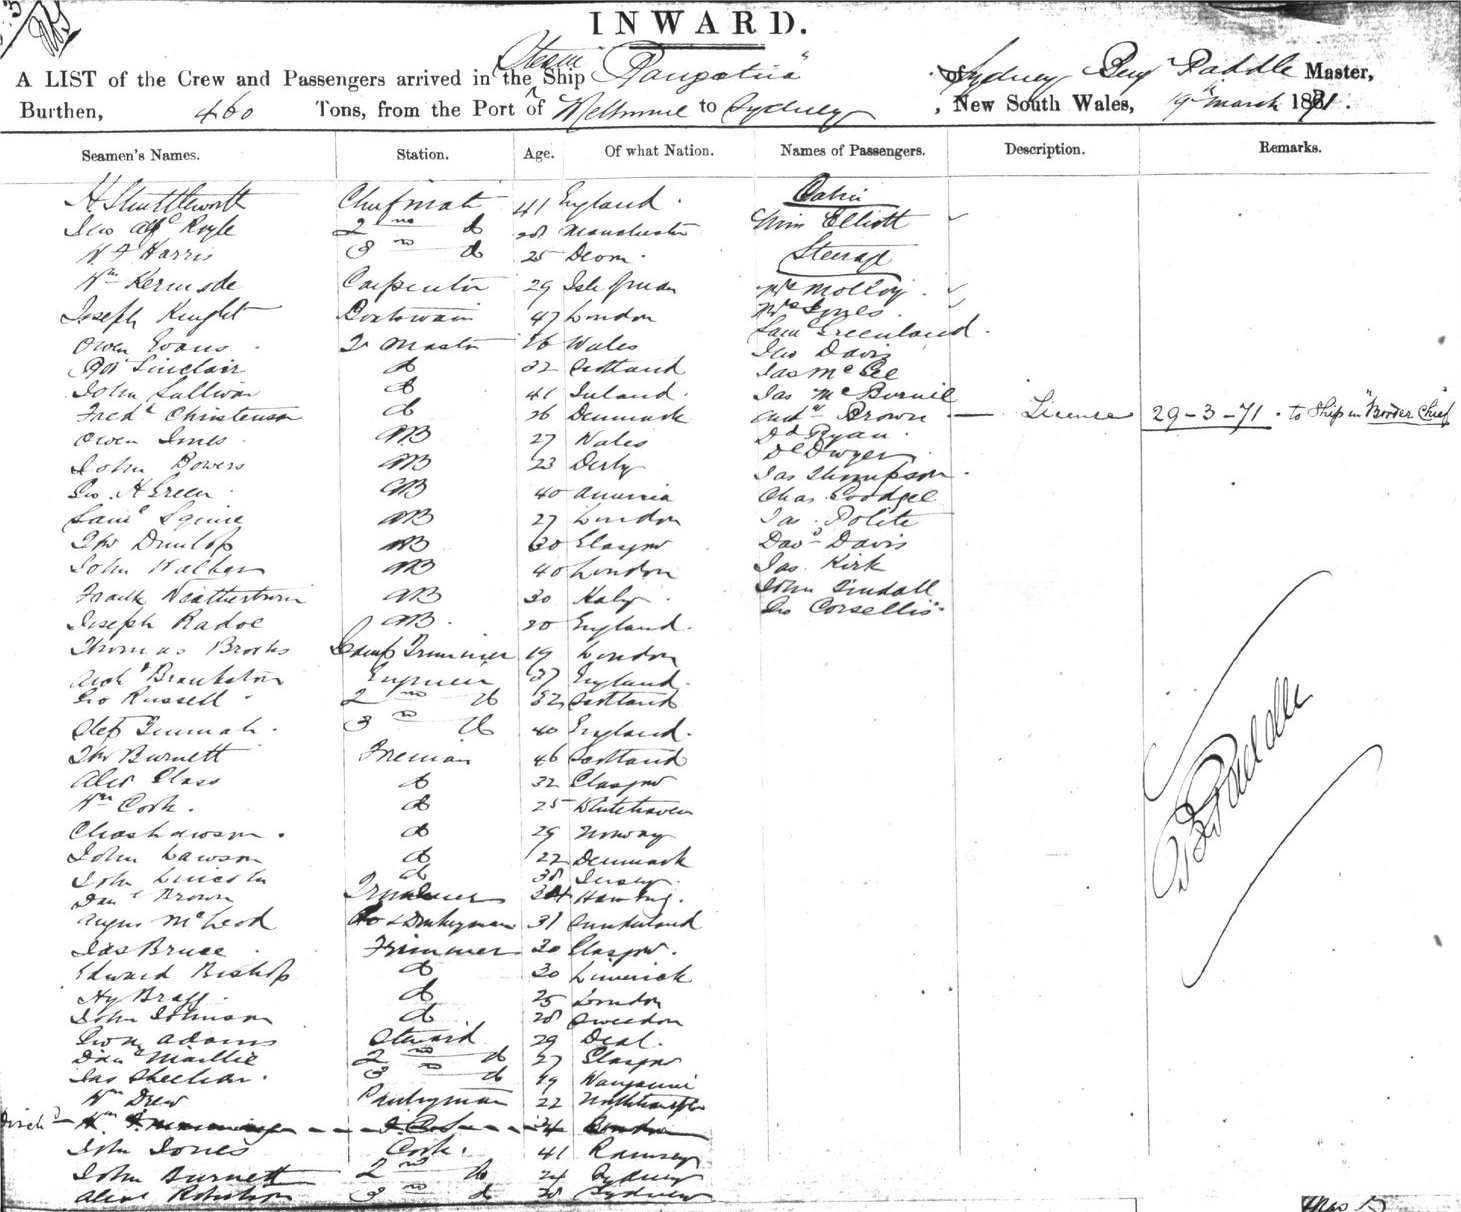 INWARD.
A LIST of the Crew and Passengers arrived in the Steam Ship "Rangatira" of Sydney Benj Paddle Master,
Burthen, 460 Tons, from the Port of Melbourne to Sydney, New South Wales, 19th March 1871.
Seamen's Names. Station. Age. Of what Nation. Names of Passengers. Description. Remarks.
H Shuttleworth Chief mate 41 England. Cabin
Royle 2nd do 28 Manchester Elliott
Harris 3rd do 25 Devon. Steerage
Wm Kermode Carpenter 29 Isle of man Molloy.
Joseph Knight Boatswain 47 London Mrs Jones.
Owen Evans Qr Master 26 Wales Saml Greenland.
Sinclair do 22 Scotland Davis
John Sullivan do 41 Ireland. Jas McGee
Fredk Christenson do 26 Denmark Jas Mc
Owen Jones AB 27 Wales Andw Brown — License 29-3-71. to Ship in "Border Chief"
John Bowers AB 23 Derby Dd Ryan.
Geo. H Green AB 40 America Dl Dwyer
Saml Squire AB 27 London Jas Thompson.
Dunlop AB 30 Glasgow Chas. Goodgee
John Walker AB 40 London Jas. Polite
Frank Weatherburn AB 30 Italy. Davd Davis
Joseph Radoe AB. 20 England. Jas. Kirk
Thomas Brooks Lamp Trimmer 19 London John Tindall
Engineer 37 England. Geo Corsellis
Geo Russell 2nd do 32 Scotland
3rd do 40 England.
Burnett Fireman 46 Scotland
Alex Glass do 32 Glasgow
Wm Cook. do 25 Whitehaven
Chas Lawson. do 29 Norway
John Lawson do 22 Denmark
John Lincoln do 38 Jersey.
Danl Brown Trimmer 34 Hamburg.
Angus McLeod do & Donkeyman 31 Sunderland
Jas Bruce Trimmer 30 Glasgow.
Edward Bishop do 30 Limerick
Hy Bragg. do 25 London
John Johnson do. 28 Sweden
Adams Steward 29 Deal.
Danl Maillie 2nd do 27 Glasgow
Jas Sheehan. 3rd do 19
Wm Drew Pantryman 22 Northampton
Wm 24 London
John Jones Cook. 41 Ramsey
John Burnett 2nd do 24 Sydney
Robertson 3rd do 28 Sydney
B Paddle